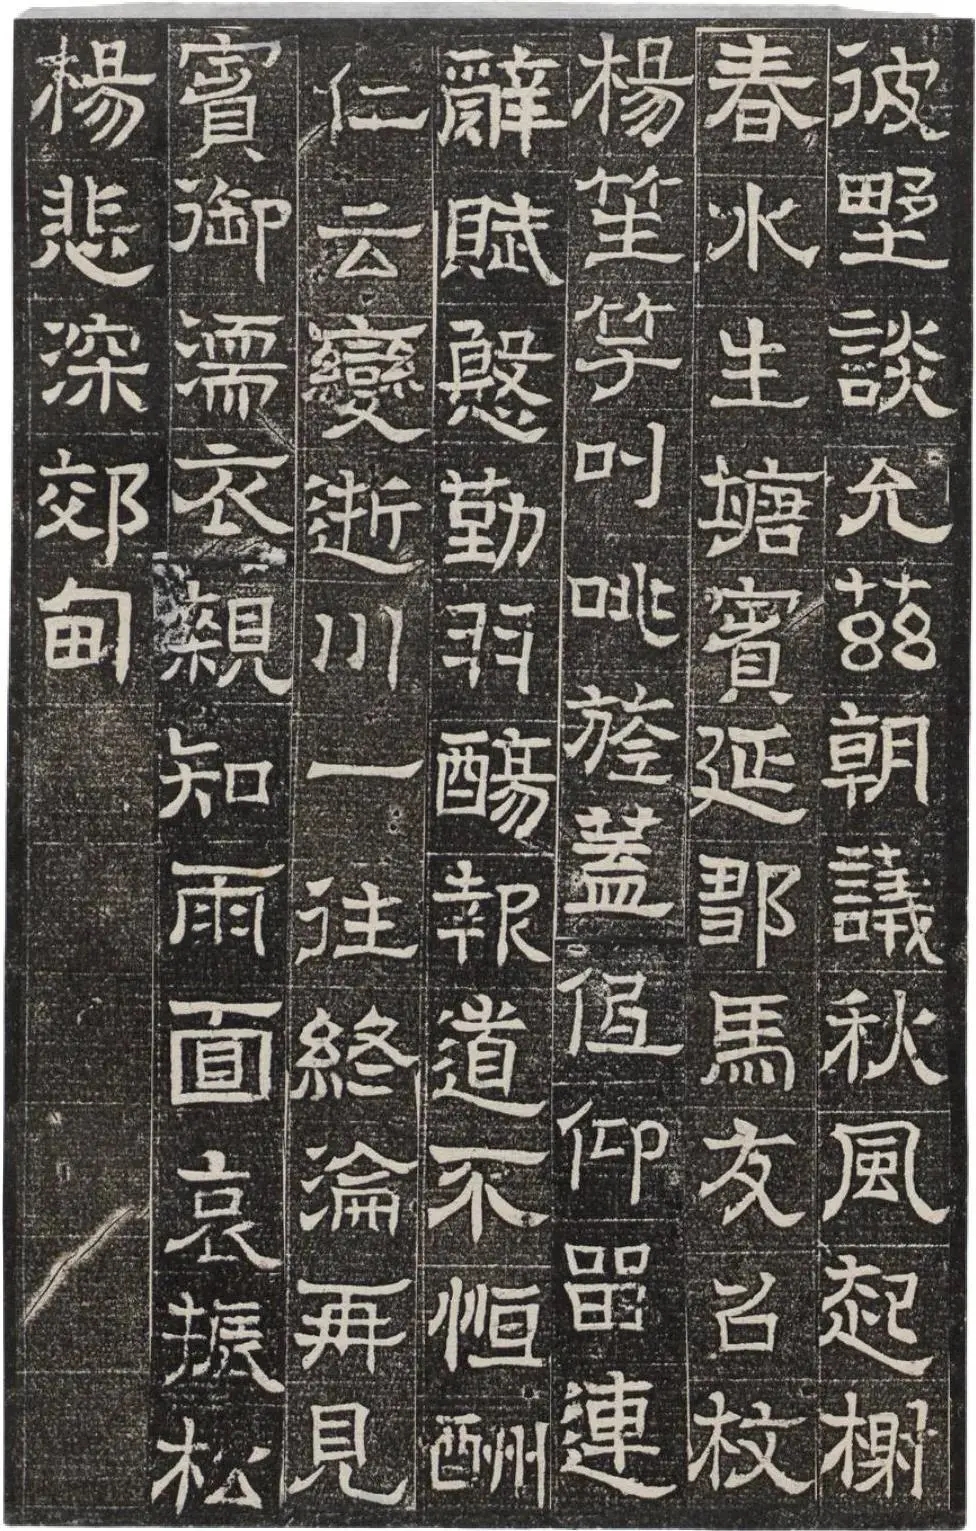 彼野談允茲朝議秋風起榭
春水生塘賓延鄒馬友召枚
楊笙竽叫咷旌蓋低仰留連
辭賦慇勤羽觴報道不恒酬
仁云變逝川一往終淪再見
賓御濡衣親知雨面哀振松
楊悲深郊甸